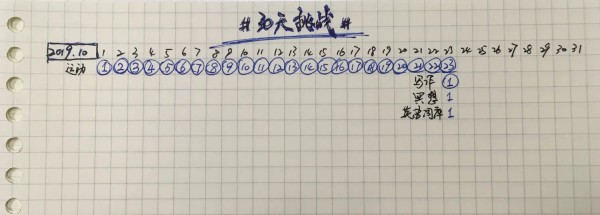 #30天挑战#
2019.10 1 2 3 4 5 6 7 8 9 10 11 12 13 14 15 16 17 18 19 20 21 22 23 24 25 26 27 28 29 30 31
运动 1 2 3 4 5 6 7 8 9 10 11 12 13 14 15 16 17 18 19 20 21 22 23
写作 1
冥想 1
1